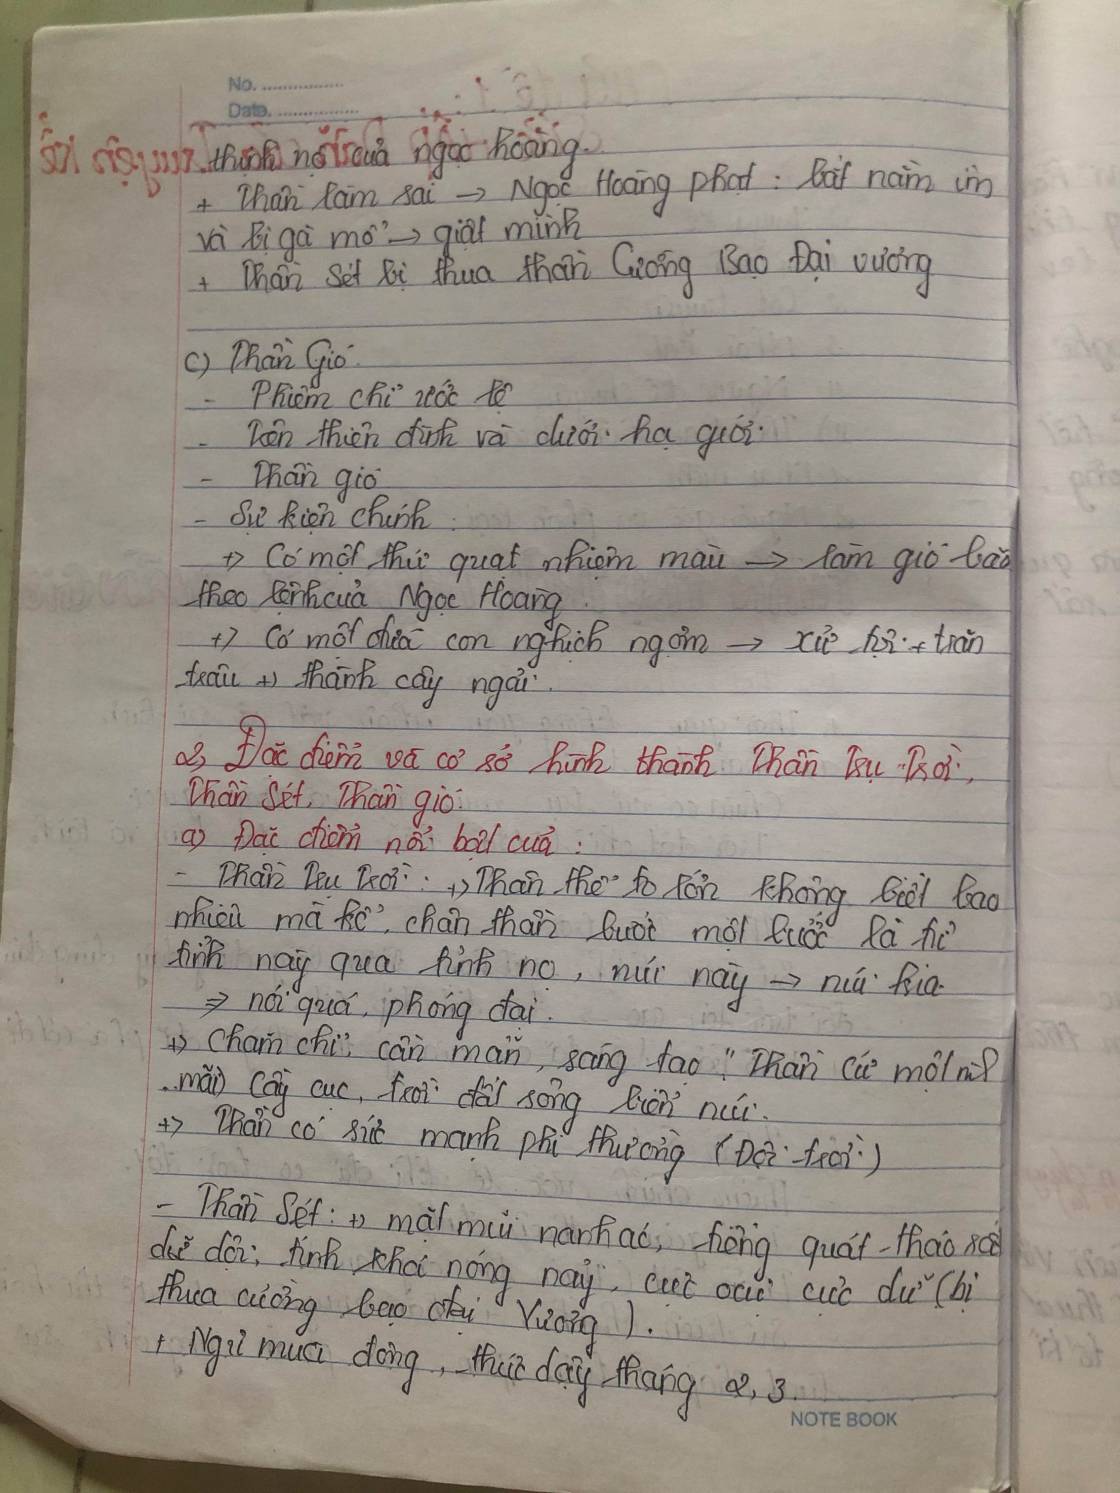 No. ................
Date. ................
thịnh nộ của ngọc hoàng.
+ Thần làm sai → Ngọc Hoàng phạt : bắt nằm im
và bị gà mổ → giật mình
+ Thần Sét bị thua thần Cường Bạo Đại vương
c) Thần Gió
- Phiếm chỉ ước lệ
- Trên thiên đình và dưới hạ giới.
- Thần gió
- Sự kiện chính :
+> Có một thứ quạt nhiệm màu → làm gió bão
theo lệnh của Ngọc Hoàng.
+> Có một đứa con nghịch ngợm → xử tội + trăn
trâu +> thành cây ngải.
2, Đặc điểm và cơ sở hình thành Thần Trụ Trời,
Thần Sét, Thần gió:
a) Đặc điểm nổi bật của :
- Thần Trụ Trời : +> Thân thể to lớn không biết bao
nhiêu mà kể, chân thần bước một bước là từ
tỉnh này qua tỉnh nọ, núi này → núi kia.
⇒ nói quá, phóng đại.
+> Chăm chỉ, cần mẫn, sáng tạo " Thần cứ một
mãi) Cây cục, trời đất sông biển núi.
+> Thần có sức mạnh phi thường (Đội trời)
- Thần Sét : +> mặt mũi nanh ác, tiếng quát tháo
dữ dội; tính khí nóng nảy, cực oai cực dữ (bị
thua cường bạo đại Vương).
+ Ngủ mùa đông, thức dậy tháng 2, 3.
NOTE BOOK